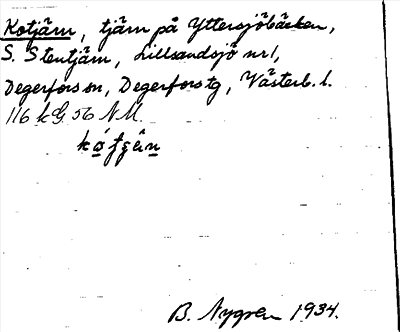 Kotjärn, tjärn på Yttersjöbäcken,
S. Stentjärn, Lillsandsjö nr 1,
Degerfors sn, Degerfors tg, Västerb. l.
116 kG 56 N M.
B. Nygren 1934.